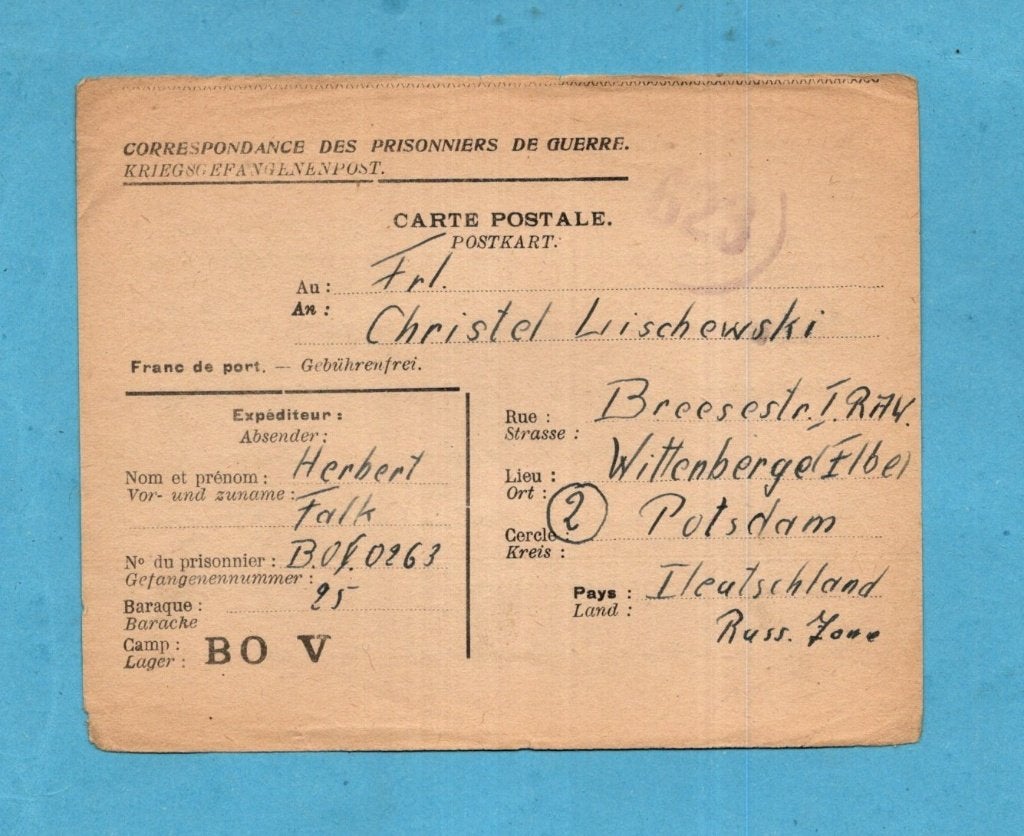 CORRESPONDANCE DES PRISONNIERS DE GUERRE.
KRIEGSGEFANGENENPOST.
623
CARTE POSTALE.
POSTKART.
Au : Frl.
An :
Christel Lischewski
Franc de port. — Gebührenfrei.
Expéditeur :
Absender :
Nom et prénom : Herbert
Vor- und zuname :
Falk
No du prisonnier : B.O.V. 0263
Gefangenennummer :
Baraque : 25
Baracke
Camp : BO V
Lager :
Rue : Breesestr. I. RAW.
Strasse :
Lieu : Wittenberge (Elbe)
Ort :
Cercle : (2) Potsdam
Kreis :
Pays : Deutschland
Land :
Russ. Zone